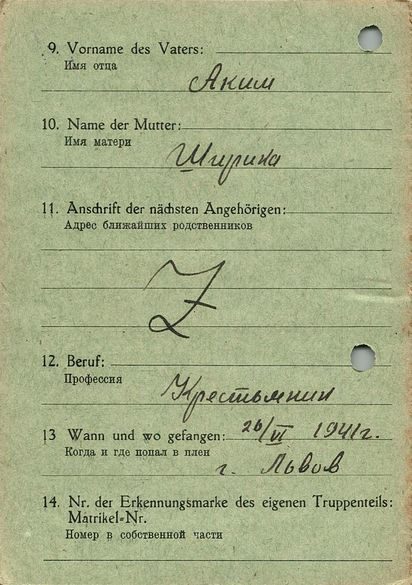 9. Vorname des Vaters:
Имя отца
Аким
10. Name der Mutter:
Имя матери
Шурика
11. Anschrift der nächsten Angehörigen:
Адрес ближайших родственников
Z
12. Beruf:
Профессия
Крестьянин
13 Wann und wo gefangen: 26/VI 1941г.
Когда и где попал в плен
г. Львов
14. Nr. der Erkennungsmarke des eigenen Truppenteils:
Matrikel-Nr.
Номер в собственной части